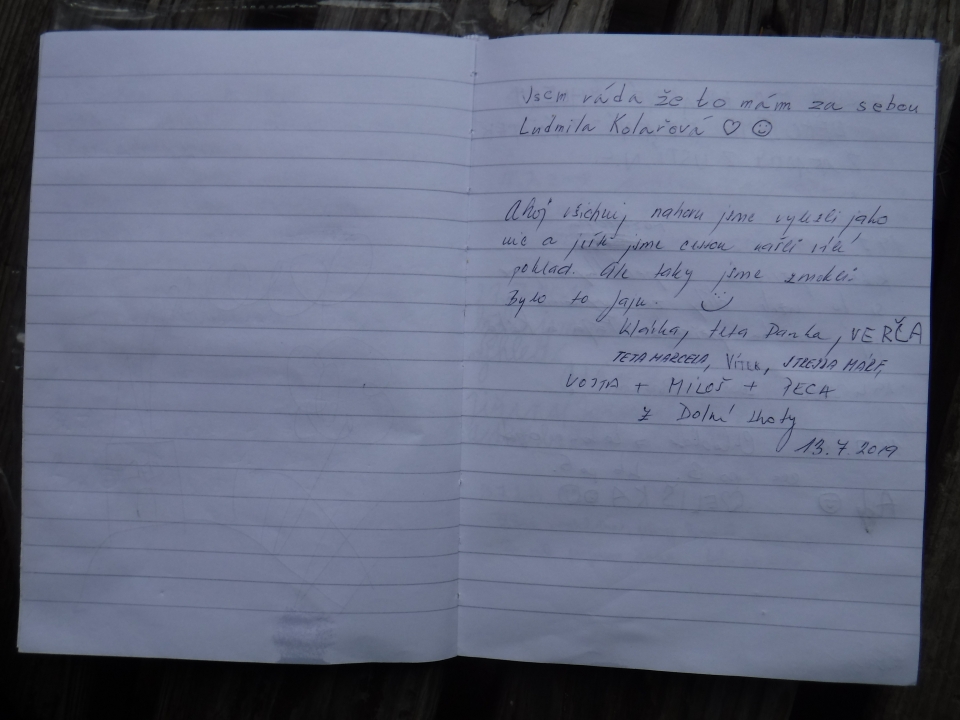 Jsem ráda že to mám za sebou
Luďmila Kolařová ♡ ☺
Ahoj všichni, nahoru jsme vylezli jako
nic a ještě jsme cestou našli
poklad. Ale taky jsme zmokli.
Bylo to fajn.
Klárka, teta Danka, VERČA
TETA MARCELA, Vítek, STREJDA MÁRF,
VOJTA + MILOŠ + PECA
z Dolní Lhoty
13.7.2019